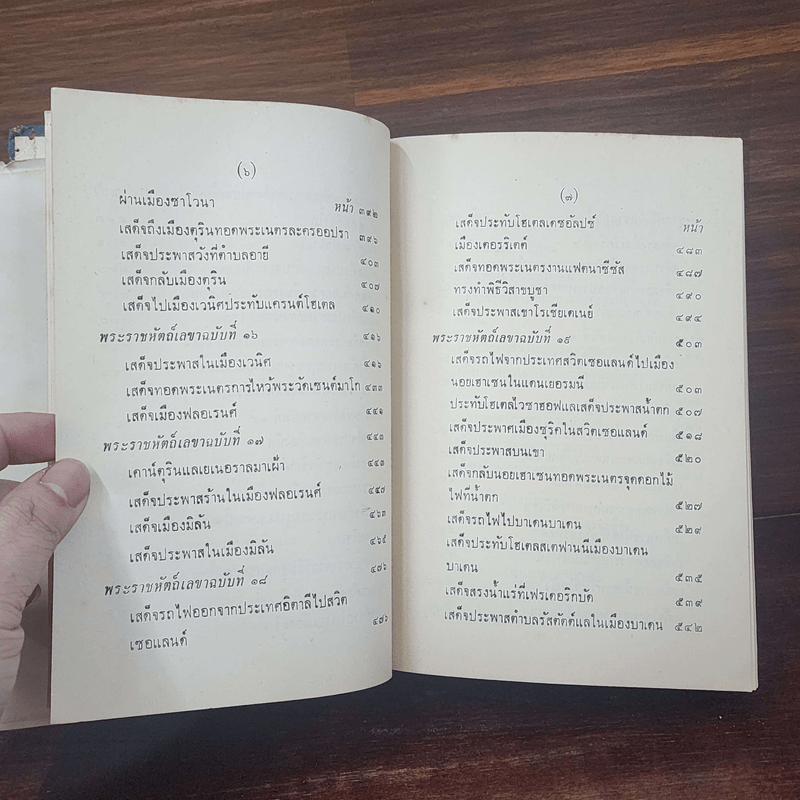 (๖)
หน้า
ผ่านเมืองซาโวนา ๓๙๒
เสด็จถึงเมืองตุรินทอดพระเนตรละครออปรา ๓๙๖
เสด็จประพาสวังที่ตำบลอายี ๔๐๓
เสด็จกลับเมืองตุริน ๔๐๗
เสด็จไปเมืองเวนิศประทับแครนด์โฮเตล ๔๑๐
พระราชหัตถ์เลขาฉบับที่ ๑๖ ๔๑๖
เสด็จประพาสในเมืองเวนิศ ๔๑๖
เสด็จทอดพระเนตรการไหว้พระวัดเซนต์มาโก ๔๓๓
เสด็จเมืองฟลอเรนศ์ ๔๔๑
พระราชหัตถ์เลขาฉบับที่ ๑๗ ๔๔๓
เคาน์ตุรินแลเยเนอราลมาเฝ้า ๔๔๓
เสด็จประพาสร้านในเมืองฟลอเรนศ์ ๔๕๗
เสด็จเมืองมิลัน ๔๖๓
เสด็จประพาสในเมืองมิลัน ๔๖๕
พระราชหัตถ์เลขาฉบับที่ ๑๘ ๔๗๖
เสด็จรถไฟออกจากประเทศอิตาลีไปสวิต
เซอแลนด์ ๔๗๖
(๗)
หน้า
เสด็จประทับโฮเตลเดซอัลปซ์
เมืองเตอรริเตต์ ๔๘๓
เสด็จทอดพระเนตรงานแฟตนาซีซัส ๔๘๗
ทรงทำพิธีวิสาขบูชา ๔๙๐
เสด็จประพาสเขาโรเชียเดเนย์ ๔๙๔
พระราชหัตถ์เลขาฉบับที่ ๑๙ ๕๐๓
เสด็จรถไฟจากประเทศสวิตเซอแลนด์ไปเมือง
นอยเฮาเซนในแดนเยอรมนี ๕๐๓
ประทับโฮเตลไวซาฮอฟแลเสด็จประพาสน้ำตก ๕๐๗
เสด็จประพาศเมืองซุริคในสวิตเซอแลนด์ ๕๑๘
เสด็จประพาสบนเขา ๕๒๐
เสด็จกลับนอยเฮาเซนทอดพระเนตรจุดดอกไม้
ไฟที่น้ำตก ๕๒๗
เสด็จรถไฟไปบาเดนบาเดน ๕๒๙
เสด็จประทับโฮเตลสเตฟานนีเมืองบาเดน
บาเดน ๕๓๕
เสด็จสรงน้ำแร่ที่เฟรเดอริกบัด ๕๓๙
เสด็จประพาสตำบลรัสตัตต์แลในเมืองบาเดน ๕๔๒